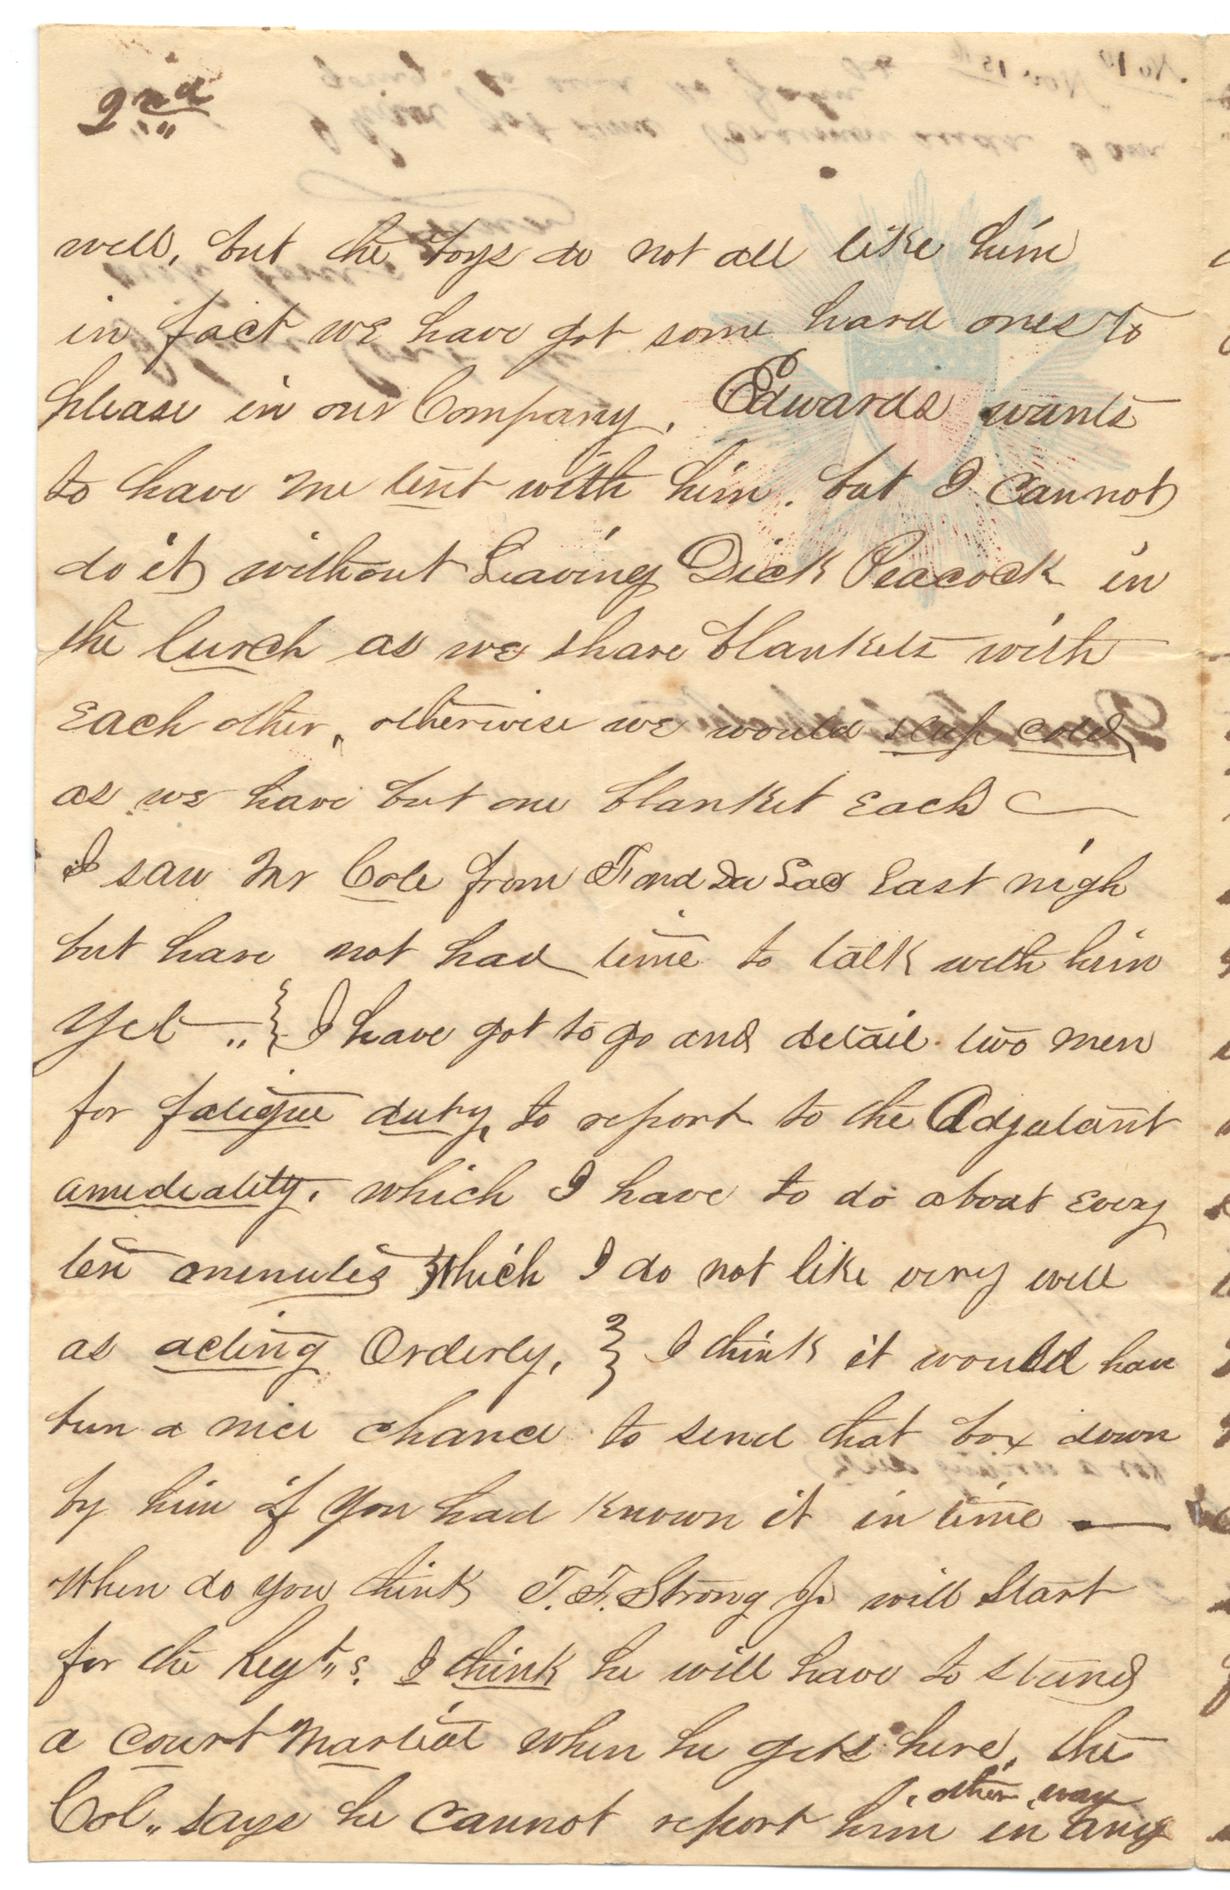 2nd
well, but the boys do not all like him
in fact we have got some hard ones to
please in our Company. Edwards wants
to have me tent with him. but I cannot
do it without Leaving Dick Peacock in
the lurch as we share blankets with
Each other, otherwise we would sleep cold,
as we have but one blanket Each
I saw Mr Cole from Fond Du Lac Last nigh
but have not had time to talk with him
yet — „ } I have got to go and detail two men
for fatigue duty, to report to the Adjutant
amediately, which I have to do about Every
ten minutes which I do not like very well
as acting Orderly, } I think it would have
been a nice chance to send that box down
by him if you had known it in time —
When do you think T. F. Strong Jr will Start
for the Regt„s. I think he will have to stand
a court Martial when he gets here, the
Col„ says he cannot report him in any
other way